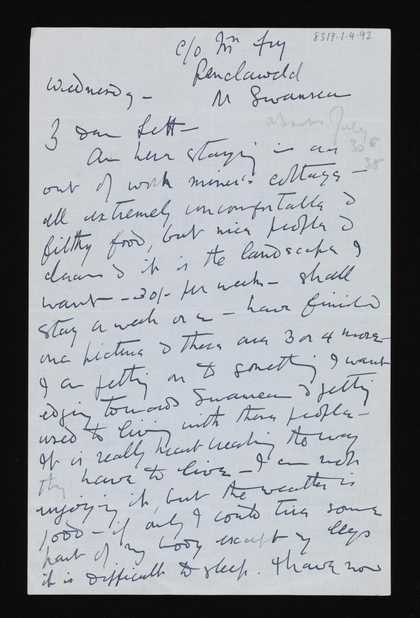 8317.1.4.92
c/o Mrs Fry
Penclawdd
Wednesday – Nr Swansea
Dear Lett –
about July
30s
38
Am here staying in an
out of work miner's cottage –
all extremely uncomfortable &
filthy food, but nice people &
clean & it is the landscape I
want – 30/- per week – shall
stay a week or so – have finishd
one picture & there are 3 or 4 more
I am getting on to something I want
edging towards Swansea & getting
used to living with these people –
It is really heart breaking the way
they have to live – I am not
enjoying it, but the weather is
good – if only I could tire some
part of my body except my legs
it is difficult to sleep. I have now